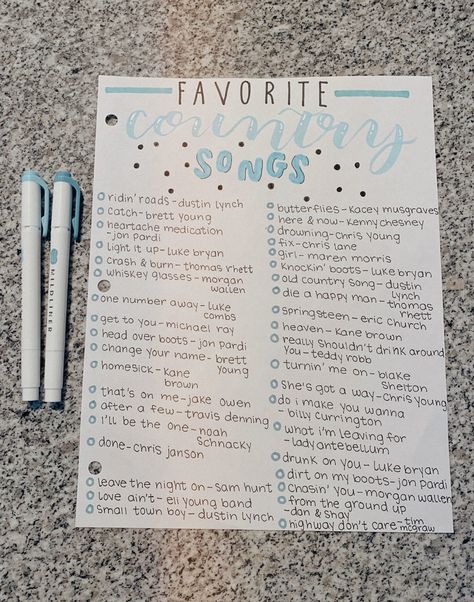 FAVORITE
country
SONGS
ridin' roads - dustin lynch
catch - brett young
heartache medication
- jon pardi
light it up - luke bryan
crash & burn - thomas rhett
whiskey glasses - morgan
wallen
one number away - luke
combs
get to you - michael ray
head over boots - jon pardi
change your name - brett
young
homesick - kane
brown
that's on me - jake owen
after a few - travis denning
I'll be the one - noah
schnacky
done - chris janson
leave the night on - sam hunt
love ain't - eli young band
small town boy - dustin lynch
butterflies - kacey musgraves
here & now - kenny chesney
drowning - chris young
fix - chris lane
girl - maren morris
knockin' boots - luke bryan
old country song - dustin
lynch
die a happy man - thomas
rhett
springsteen - eric church
heaven - kane brown
really shouldn't drink around
you - teddy robb
turnin' me on - blake
shelton
she's got a way - chris young
do i make you wanna
- billy currington
what i'm leaving for
- lady antebellum
drunk on you - luke bryan
dirt on my boots - jon pardi
chasin' you - morgan wallen
from the ground up
- dan & shay
highway don't care - tim
mcgraw
MILDLINER